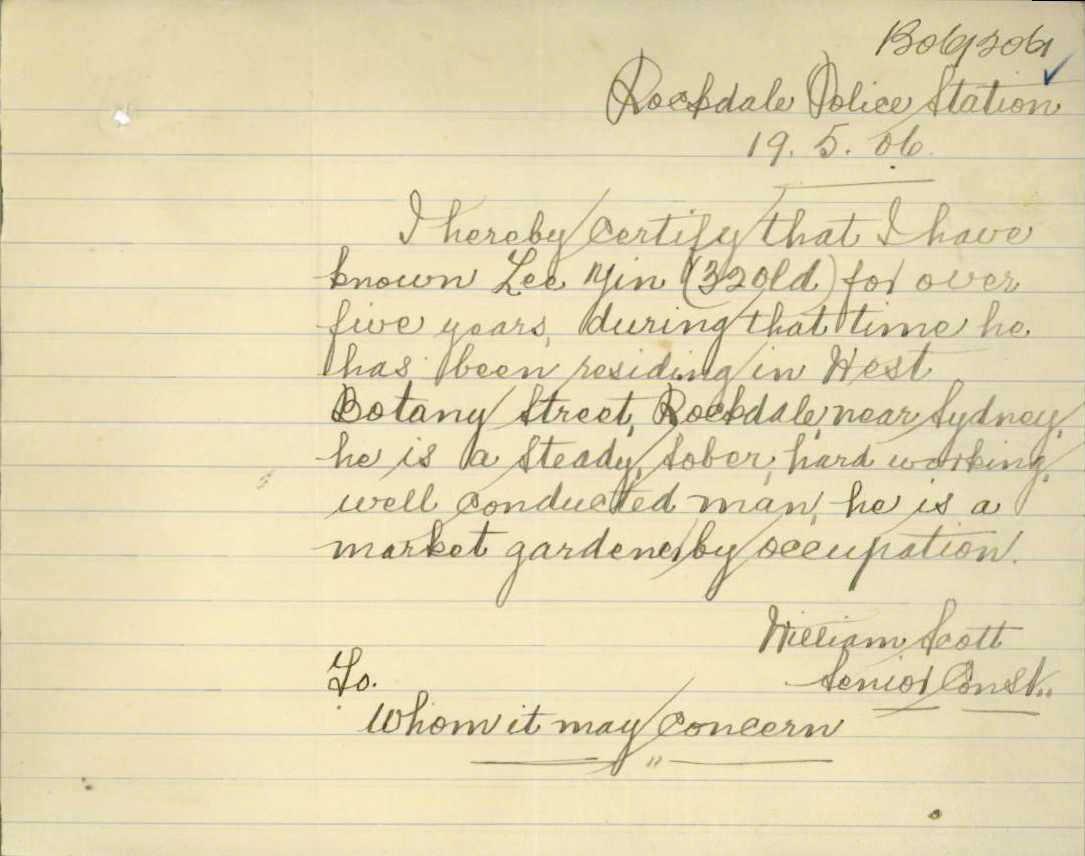 Rockdale Police Station
19. 5. 06.
I hereby Certify that I have
known Lee Yin (32 old) for over
five years, during that time he
has been residing in West
Botany Street, Rockdale, near Sydney,
he is a steady, sober, hard working,
well conducted man, he is a
market gardener by occupation.
William Scott
Senior Const..
To.
Whom it may Concern